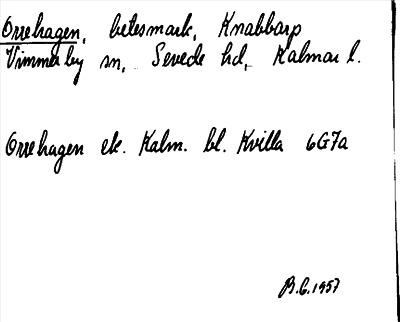 Orrehagen, betesmark, Knabbarp
Vimmerby sn, Sevede hd, Kalmar l.
Orrehagen ek. Kalm. bl. Kvilla 6G7a
B.G. 1957